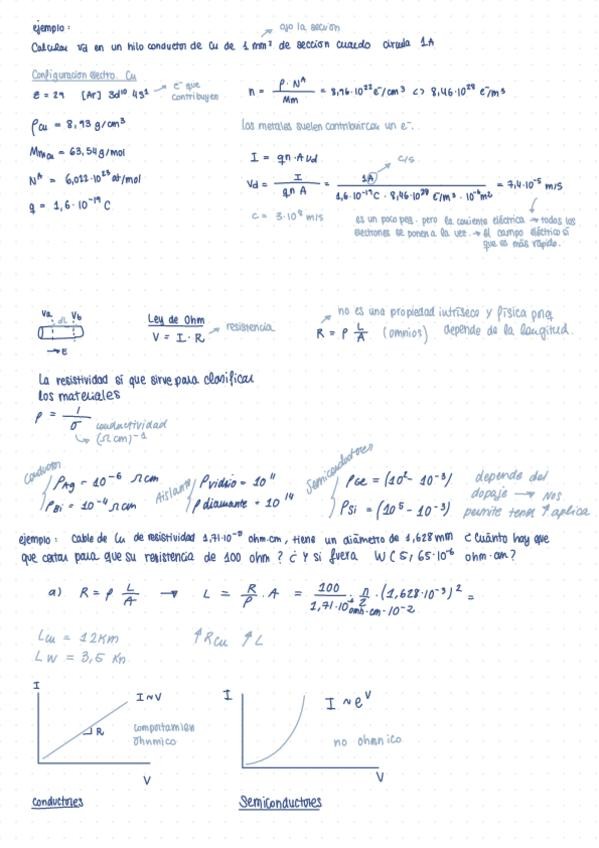 ejemplo:
ojo la sección
Calcular Vd en un hilo conductor de Cu de 1 mm² de sección cuando circula 1A
Configuración electro. Cu
Z = 29 [Ar] 3d¹⁰ 4s¹ → e⁻ que contribuyen
n = ρ · Nᴬ / Mm = 8,46·10²² e⁻/cm³ <> 8,46·10²⁸ e⁻/m³
ρcu = 8,93 g/cm³
Los metales suelen contribuir con un e⁻.
Mmcu = 63,54 g/mol
I = qn·A Vd
C/s.
Nᴬ = 6,022·10²³ at/mol
Vd = I / qnA = 1A / 1,6·10⁻¹⁹C · 8,46·10²⁸ e⁻/m³ · 10⁻⁶m² = 7,4·10⁻⁵ m/s
q = 1,6·10⁻¹⁹ C
c = 3·10⁸ m/s
es un poco peq. pero la corriente eléctrica → todos los
electrones se ponen a la vez. → El campo eléctrico sí
que es más rápido.
Va Vb
→ E
Ley de Ohm
V = I · R → resistencia
no es una propiedad intríseca y física prq
R = ρ L/A (omnios) depende de la longitud.
La resistividad si que sirve para clasificar
los materiales
ρ = 1/σ conductividad
(Ω cm)⁻¹
Conductor
ρAg = 10⁻⁶ Ω cm
ρBi = 10⁻⁴ Ω cm
Aislante
ρvidrio = 10¹¹
ρdiamante = 10¹⁴
Semiconductores
ρGe = (10² - 10⁻³)
ρSi = (10⁵ - 10⁻³)
depende del
dopaje → Nos
permite tener ↑ aplica.
ejemplo: Cable de Cu de resistividad 1,71·10⁻⁸ ohm·cm, tiens un diámetro de 1,628mm ¿Cuánto hay que
que cortar para que su resistencia de 100 ohm? ¿Y si fuera W (5,65·10⁻⁶ ohm·cm?
a) R = ρ L/A → L = R/ρ · A = 100 / 1,71·10 ohm·cm·10⁻² · π/2 · (1,628·10⁻³)² =
Lcu = 12Km
↑Rcu ↑L
Lw = 3,5 Km
I
I ~ V
R
comportamien
óhnmico
V
conductores
I
I ~ eⱽ
no ohmnico
V
Semiconductores